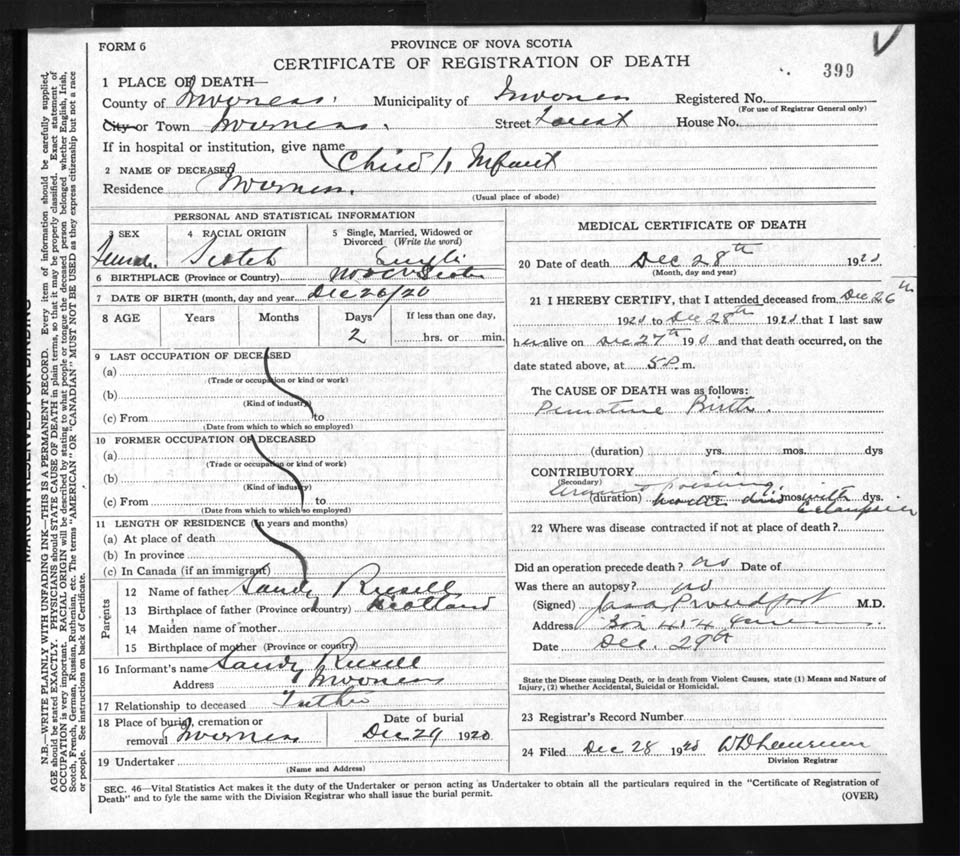 FORM 6
PROVINCE OF NOVA SCOTIA
CERTIFICATE OF REGISTRATION OF DEATH
399
1 PLACE OF DEATH—
County of Inverness. Municipality of Inverness Registered No.
(For use of Registrar General only)
City or Town Inverness. Street Forest House No.
If in hospital or institution, give name
2 NAME OF DECEASED Child Infant
Residence Inverness.
(Usual place of abode)
PERSONAL AND STATISTICAL INFORMATION
3 SEX 4 RACIAL ORIGIN 5 Single, Married, Widowed or
Divorced (Write the word)
Female. Scotch Single
6 BIRTHPLACE (Province or Country) Nova Scotia
7 DATE OF BIRTH (month, day and year) Dec 26/20
8 AGE Years Months Days If less than one day,
2 hrs. or min.
9 LAST OCCUPATION OF DECEASED
(a)
(Trade or occupation or kind or work)
(b)
(Kind of industry)
(c) From to
(Date from which to which so employed)
10 FORMER OCCUPATION OF DECEASED
(a)
(Trade or occupation or kind of work)
(b)
(Kind of industry)
(c) From to
(Date from which to which so employed)
11 LENGTH OF RESIDENCE (In years and months)
(a) At place of death
(b) In province
(c) In Canada (if an immigrant)
Parents
12 Name of father Sandy Russell
13 Birthplace of father (Province or country) Scotland
14 Maiden name of mother
15 Birthplace of mother (Province or country)
16 Informant's name Sandy Russell
Address Inverness
17 Relationship to deceased Father
18 Place of burial, cremation or Date of burial
removal Inverness Dec 29 1920
19 Undertaker
(Name and Address)
MEDICAL CERTIFICATE OF DEATH
20 Date of death Dec 28th 1920
(Month, day and year)
21 I HEREBY CERTIFY, that I attended deceased from Dec 26th
1920 to Dec 28th 1920 that I last saw
her alive on Dec 27th 1920 and that death occurred, on the
date stated above, at 5 P. m.
The CAUSE OF DEATH was as follows:
Premature Birth.
(duration) yrs. mos. dys
CONTRIBUTORY
(Secondary) poisoning
(duration) mother yrs. died mos. with dys.
Eclampsia
22 Where was disease contracted if not at place of death?
Did an operation precede death? no Date of
Was there an autopsy? no
(Signed) Proudfoot M.D.
Address Box 414 Inverness
Date Dec. 29th
State the Disease causing Death, or in death from Violent Causes, state (1) Means and Nature of
Injury, (2) whether Accidental, Suicidal or Homicidal.
23 Registrar's Record Number
24 Filed Dec 28 1920
Division Registrar
SEC. 46—Vital Statistics Act makes it the duty of the Undertaker or person acting as Undertaker to obtain all the particulars required in the "Certificate of Registration of
Death" and to fyle the same with the Division Registrar who shall issue the burial permit.
(OVER)
MARGIN RESERVED FOR BINDING
N.B.—WRITE PLAINLY WITH UNFADING INK—THIS IS A PERMANENT RECORD. Every item of information should be carefully supplied.
AGE should be stated EXACTLY. PHYSICIANS should STATE CAUSE OF DEATH in plain terms, so that it may be properly classified. Exact statement of
OCCUPATION is very important. RACIAL ORIGIN will be described by stating to what people or tongue the deceased person belonged whether English, Irish,
Scotch, French, German, Russian, Ruthenian, etc. The terms "AMERICAN" OR "CANADIAN" MUST NOT BE USED as they express citizenship but not a race
or people. See instructions on back of Certificate.